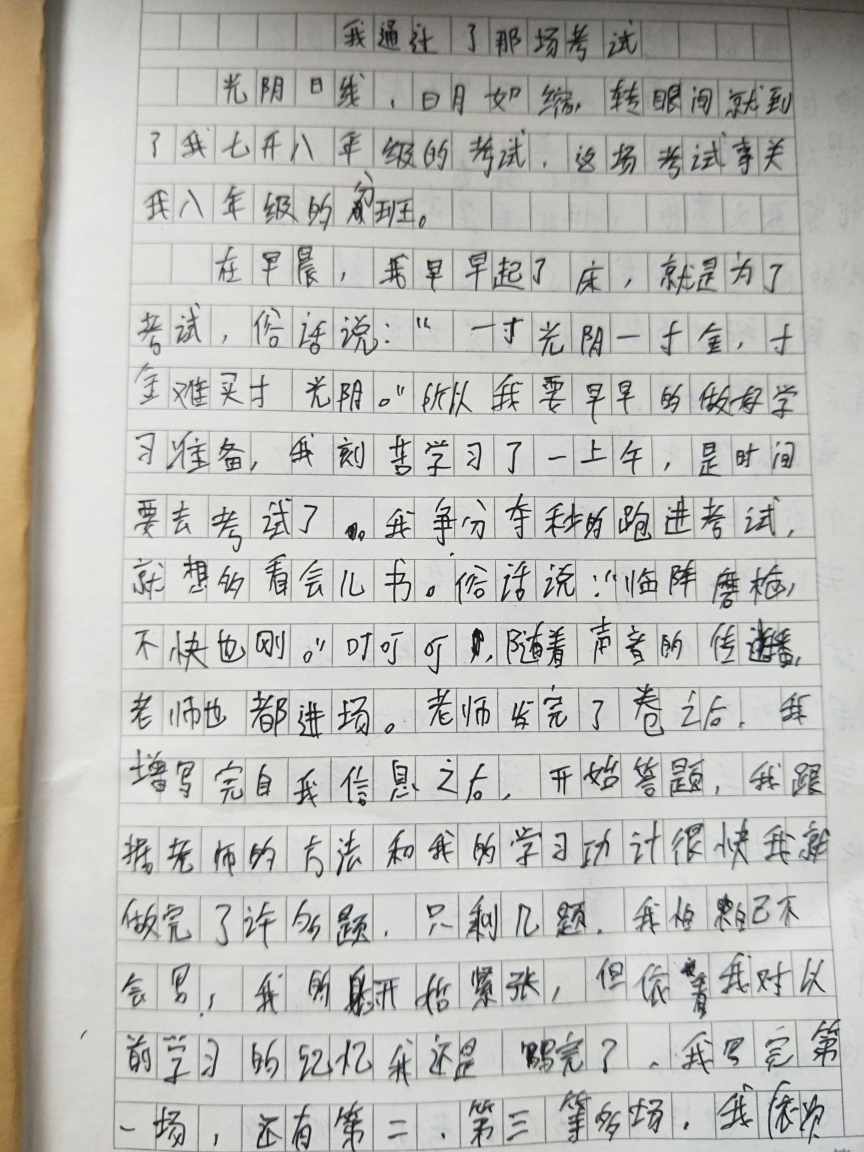 我通过了那场考试
光阴日线，日月如缩，转眼间就到
了我七升八年级的考试，这场考试事关
我八年级的分班。
在早晨，我早早起了床，就是为了
考试，俗话说：“一寸光阴一寸金，寸
金难买寸光阴。”所以我要早早的做好学
习准备，我刻苦学习了一上午，是时间
要去考试了。我争分夺秒的跑进考试，
就想的看会儿书。俗话说：“临阵磨枪，
不快也刚。”叮叮叮，随着声音的传播，
老师也都进场。老师发完了卷之后，我
增写完自我信息之后，开始答题，我跟
据老师的方法和我的学习功计很快我就
做完了许多题，只剩几题，我怕自己不
会写，我的开始紧张，但依着我对以
前学习的记忆我还是写完了、我写完第
一场，还有第二、第三等多场，我依次